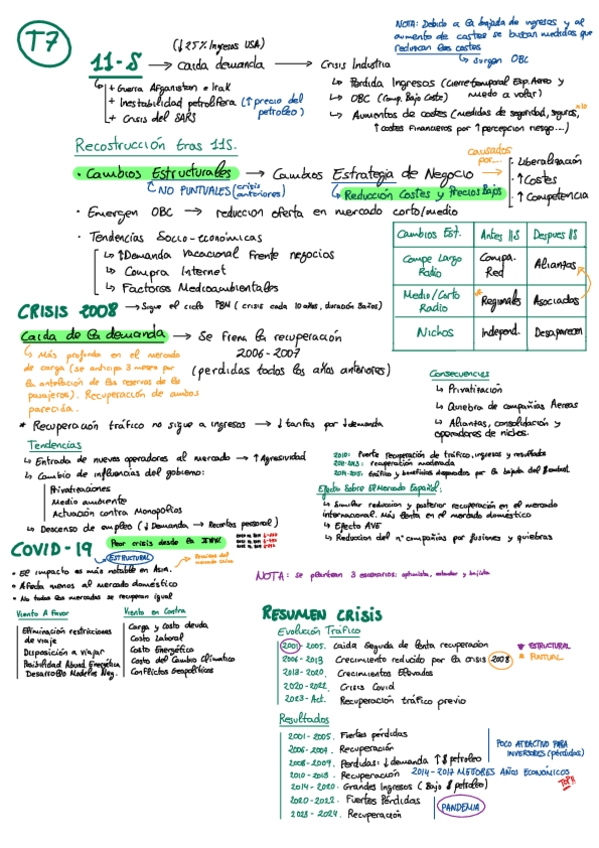 T7
NOTA: Debido a la bajada de ingresos y al
aumento de costes se buscan medidas que
reduzcan los costes
↳ surgen OBC
(↓25% Ingresos USA)
11-S → Caida demanda → Crisis Industria
+ Guerra Afganistan e Irak
+ Inestabilidad petrolifera (↑ precio del
petroleo)
+ Crisis del SARS
↳ Perdida Ingresos (Cierre temporal Esp. Aereo y
miedo a volar)
↳ OBC (Comp. Bajo Coste)
↳ Aumentos de costes (medidas de seguridad, seguros, x10
↑ costes financieros por ↑ percepcion riesgo...)
Recostrucción tras 11S.
• Cambios Estructurales → Cambios Estrategia de Negocio
NO PUNTUALES (crisis
anteriores)
↳ Reducción Costes y Precios Bajos
causados
por...
• Liberalización
• ↑ Costes
• ↑ Competencia
• Emergen OBC → reduccion oferta en mercado corto/medio
• Tendencias Socio-económicas
↳ ↑Demanda Vacacional frente negocios
↳ Compra Internet
↳ Factores Medioambientales
Cambios Est. Antes 11S Despues 11S
Compe Largo Radio Compa. Red Alianzas
Medio/Corto Radio Regionales Asociadas
Nichos Independ. Desaparecen
CRISIS 2008 → Sigue el ciclo PBM (crisis cada 10 años, duración 3años)
Caida de la demanda → Se frena la recuperación
2006-2007
(perdidas todos los años anteriores)
↳ Más profunda en el mercado
de carga (se anticipa 3 meses por
la antelación de las reservas de los
pasajeros). Recuperación de ambos
parecida.
* Recuperación tráfico no sigue a ingresos → ↓ tarifas por ↓demanda
Consecuencias
↳ Privatización
↳ Quiebra de compañías Aereas
↳ Alianzas, consolidación y
operadores de nichos.
Tendencias
↳ Entrada de nuevos operadores al mercado → ↑ Agresividad
↳ Cambio de influencias del gobierno:
Privatizaciones
Medio ambiente
Actuación contra Monopolios
↳ Descenso de empleo (↓ Demanda → Recortes personal)
2010: Fuerte recuperación de tráfico, ingresos y resultados
2011-2013: recuperación moderada
Efecto Sobre El Mercado Español:
↳ Similar reduccion y posterior recuperación en el mercado
internacional. Más lenta en el mercado doméstico
↳ Efecto AVE
↳ Reduccion del nº compañías por fusiones y quiebras
COVID-19
Peor crisis desde la
ESTRUCTURAL
• El impacto es más notable en Asia.
• Afecta menos al mercado doméstico
• No todos los mercados se recuperan igual
NOTA: se plantean 3 escenarios: optimista, estandar y bajista
Viento A Favor
Eliminación restricciones
de viaje
Disposición a viajar
Desarrollo Modelos Neg.
Viento en Contra
Carga y Costo deuda
Costo Laboral
Costo Energético
Costo del Cambio Climatico
Conflictos Geopolíticos
RESUMEN CRISIS
Evolución Tráfico
2001-2005. Caida Seguida de lenta recuperacion
ESTRUCTURAL
PUNTUAL
2006-2013 Crecimiento reducido por la crisis 2008
2018-2020. Crecimientos Elevados
2020-2022. Crisis Covid
2023-Act. Recuperación tráfico previo
Resultados
2001-2005. Fuertes pérdidas
2006-2007. Recuperación
2008-2009. Perdidas: ↓ demanda ↑$ petroleo
2010-2013. Recuperación
2014-2017 MEJORES AÑOS ECONÓMICOS
2014-2020. Grandes Ingresos (Bajo $ petroleo)
2020-2022. Fuertes Pérdidas
PANDEMIA
2023-2024. Recuperación
POCO ATRACTIVO PARA
INVERSORES (pérdidas)